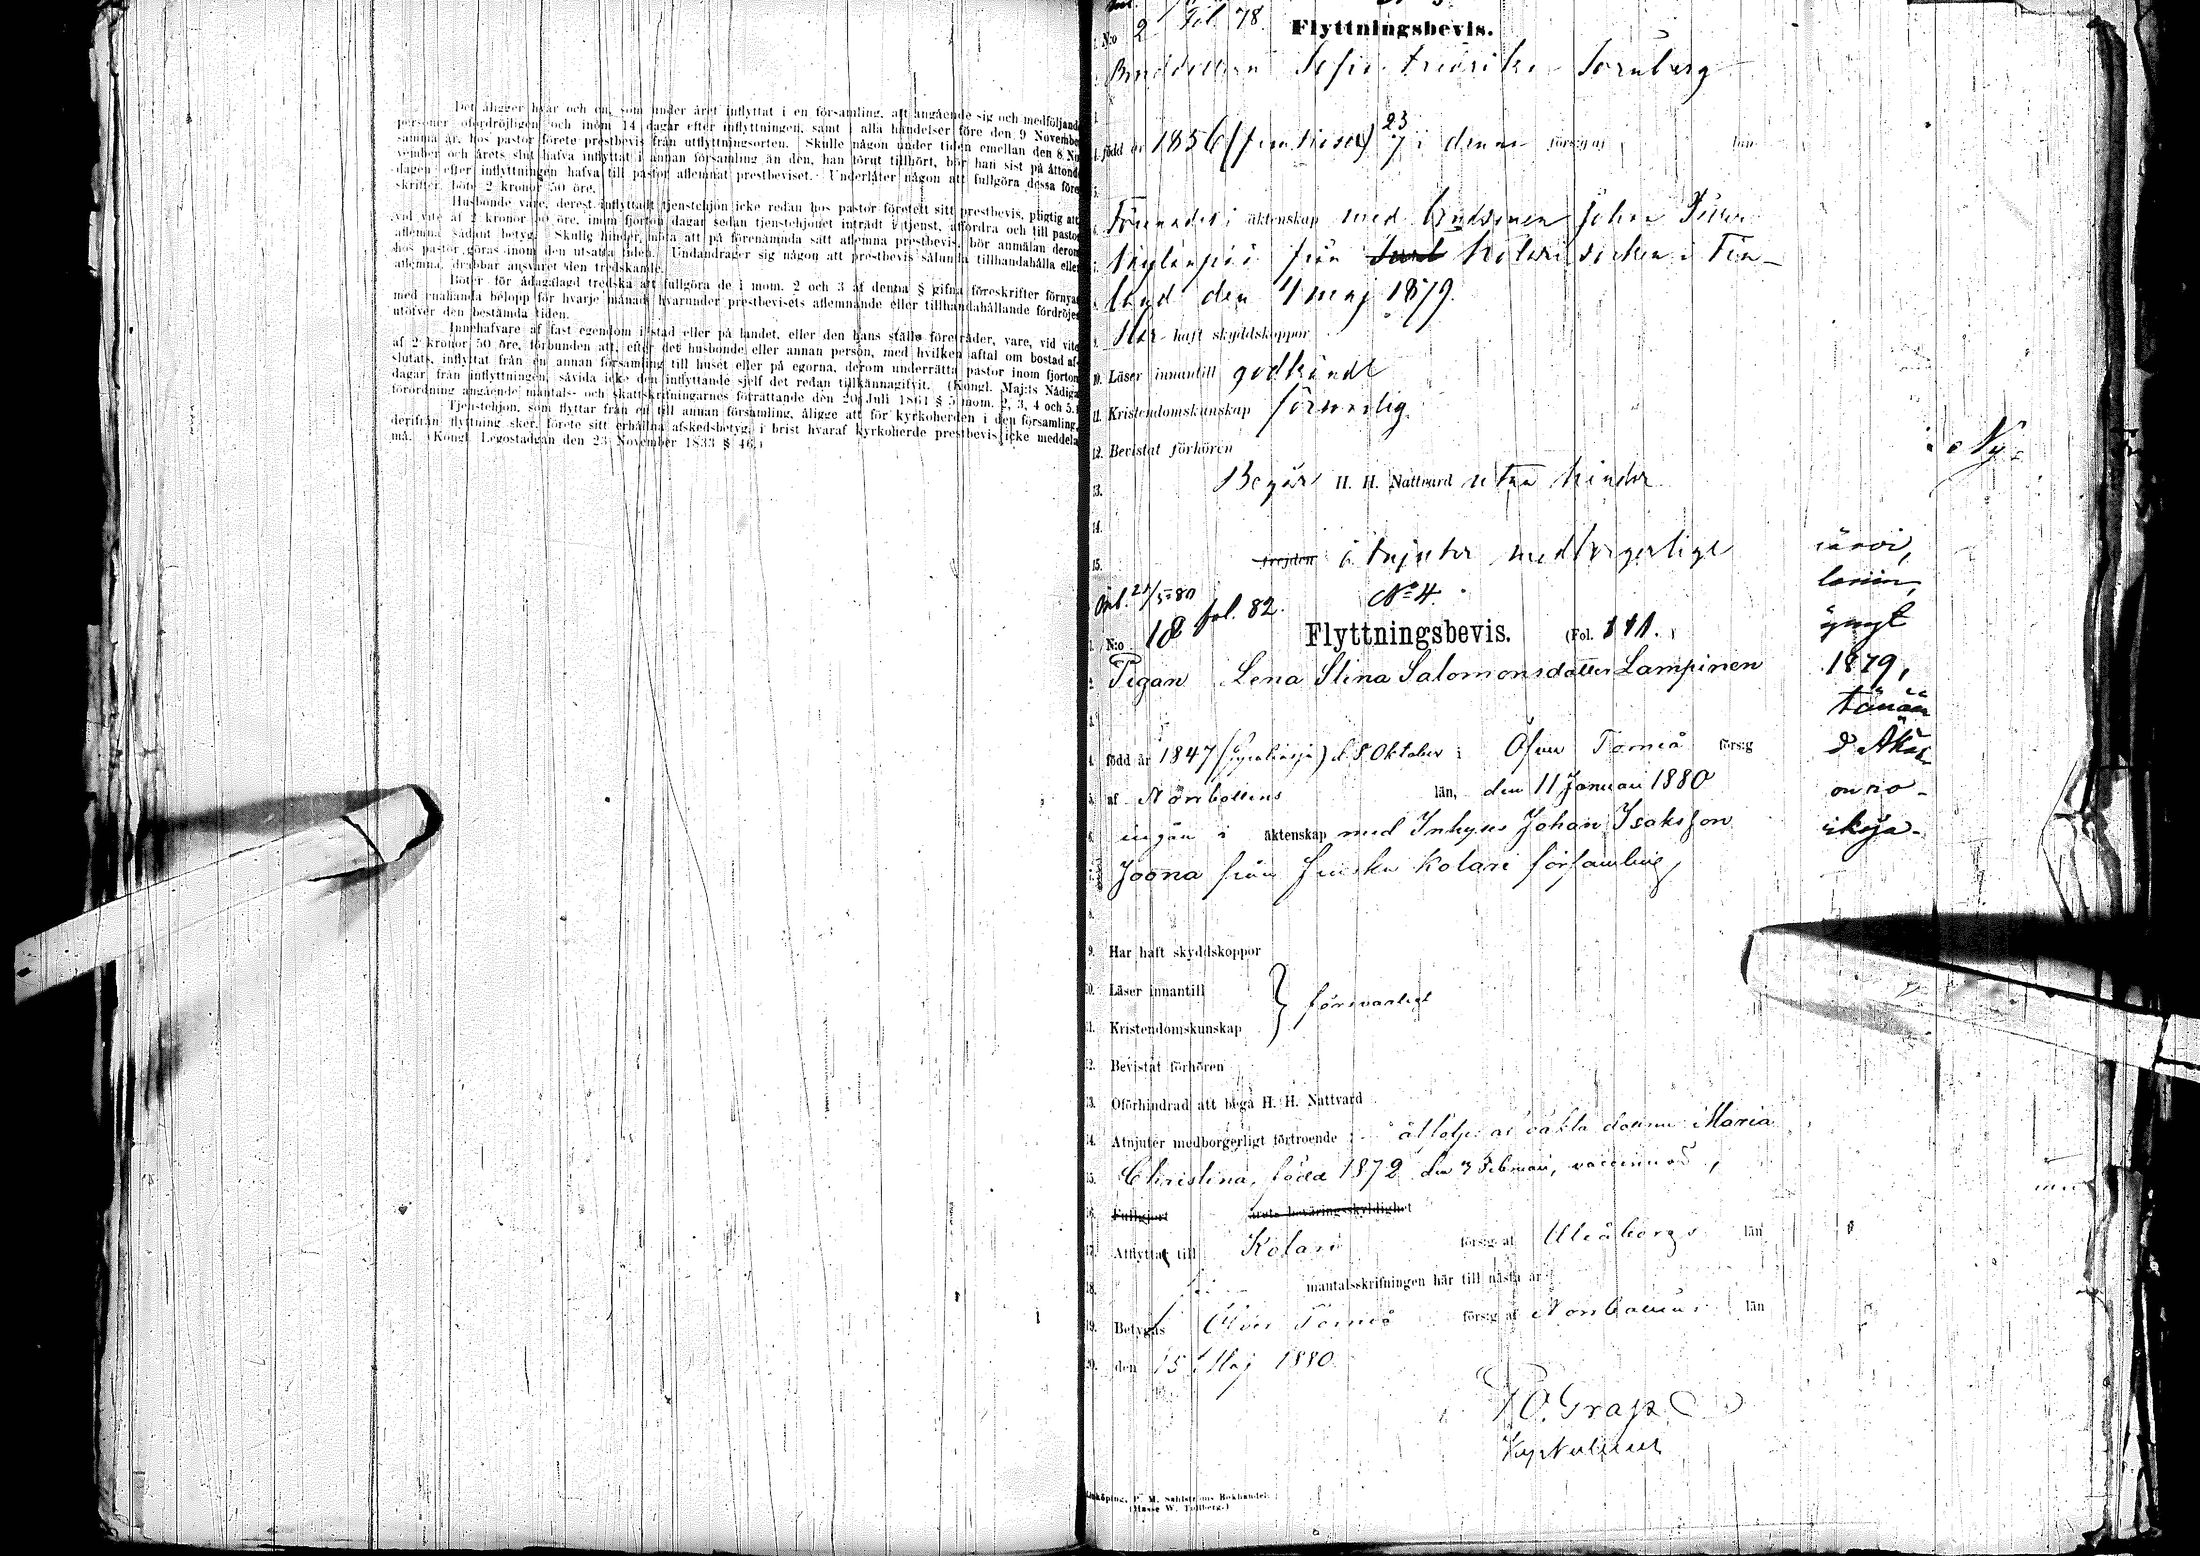 Det åligger hvar och en, som under året inflyttat i en församling, att angående sig och medföljande
personer ofördröjligen och inom 14 dagar efter inflyttningen, samt i alla händelser före den 9 November
samma år, hos pastor förete prestbevis från utflyttningsorten. Skulle någon under tiden emellan den 8 No-
vember och årets slut hafva inflyttat i annan församling än den, han förut tillhört, bör han sist på åttonde
dagen efter inflyttningen hafva till pastor aflemnat prestbeviset. Underlåter någon att fullgöra dessa före-
skrifter, böte 2 kronor 50 öre.
Husbonde vare, derest inflyttadt tjenstehjon icke redan hos pastor företett sitt prestbevis, pligtig att
vid vite af 2 kronor 50 öre, inom fjorton dagar sedan tjenstehjonet inträdt i tjenst, affordra och till pastor
aflemna sådant betyg. Skulle hinder möta att på förenämnda sätt aflemna prestbevis, bör anmälan derom
hos pastor göras inom den utsatta tiden. Undandrager sig någon att prestbevis sålunda tillhandahålla eller
aflemna, drabbar ansvaret den tredskande.
Böter för ådagalagd tredska att fullgöra de i mom. 2 och 3 af denna § gifna föreskrifter förnyas
med enahanda belopp för hvarje månad, hvarunder prestbevisets aflemnande eller tillhandahållande fördröjes
utöfver den bestämda tiden.
Innehafvare af fast egendom i stad eller på landet, eller den hans ställe företräder, vare, vid vite
af 2 kronor 50 öre, förbunden att, efter det husbonde eller annan person, med hvilken aftal om bostad af-
slutats, inflyttat från en annan församling till huset eller på egorna, derom underrätta pastor inom fjorton
dagar från inflyttningen, såvida icke den inflyttande sjelf det redan tillkännagifvit. (Kongl. Maj:ts Nådiga
förordning angående mantals- och skattskrifningarnes förrättande den 20 Juli 1861 § 5 mom. 2, 3, 4 och 5.)
Tjenstehjon, som flyttar från en till annan församling, åligge att för kyrkoherden i den församling,
derifrån flyttning sker, förete sitt erhållna afskedsbetyg, i brist hvaraf kyrkoherde prestbevis icke meddela
må. (Kongl. Legostadgan den 23 November 1833 § 46.)
1. N:o 2 Fol 78 Flyttningsbevis.
Sofia Fredrika Törnberg
4. född år 1856 (femtiosex) 23/7 i denna förs:g af län
i äktenskap med Johan
från Kolari socken i Fin-
land den 4 maj 1879.
9. Har haft skyddskoppor
10. Läser innantill godkändt
11. Kristendomskunskap försvarlig
12. Bevistat förhören
Ny-
13. Begår H. H. Nattvard utan hinder
14.
15. frejden åtnjuter medborgerlige
järvi,
länin,
Inl. 25/5 80 fol. 82. No 4.
1. N:o 10 Flyttningsbevis. (Fol. 141.)
2. Pigan Lena Stina Salomonsdotter Lampinen
1879,
tänään
4. född år 1847 (fyratiosju) d. 8 Oktober i Öfver Torneå förs:g
5. af Norrbottens län, den 11 Januari 1880
6. ingån i äktenskap med Inhyses Johan Isaksson
7. Joona från finska Kolari församling
8.
9. Har haft skyddskoppor
10. Läser innantill
} försvarligt
11. Kristendomskunskap
12. Bevistat förhören
13. Oförhindrad att begå H. H. Nattvard
14. Åtnjuter medborgerligt förtroende; åtföljes af oäkta dottern Maria
15. Christina, född 1872 den 3 Februari, vaccinerad,
16. Fullgjort årets beväringsskyldighet
17. Afflyttat till Kolari förs:g af Uleåborgs län
18. mantalsskrifningen här till nästa år
19. Betygas Öfver Torneå förs:g af Norrbottens län
20. den 15 Maj 1880.
P O. Grape
Linköping, P. M. Sahlströms Bokhandel.